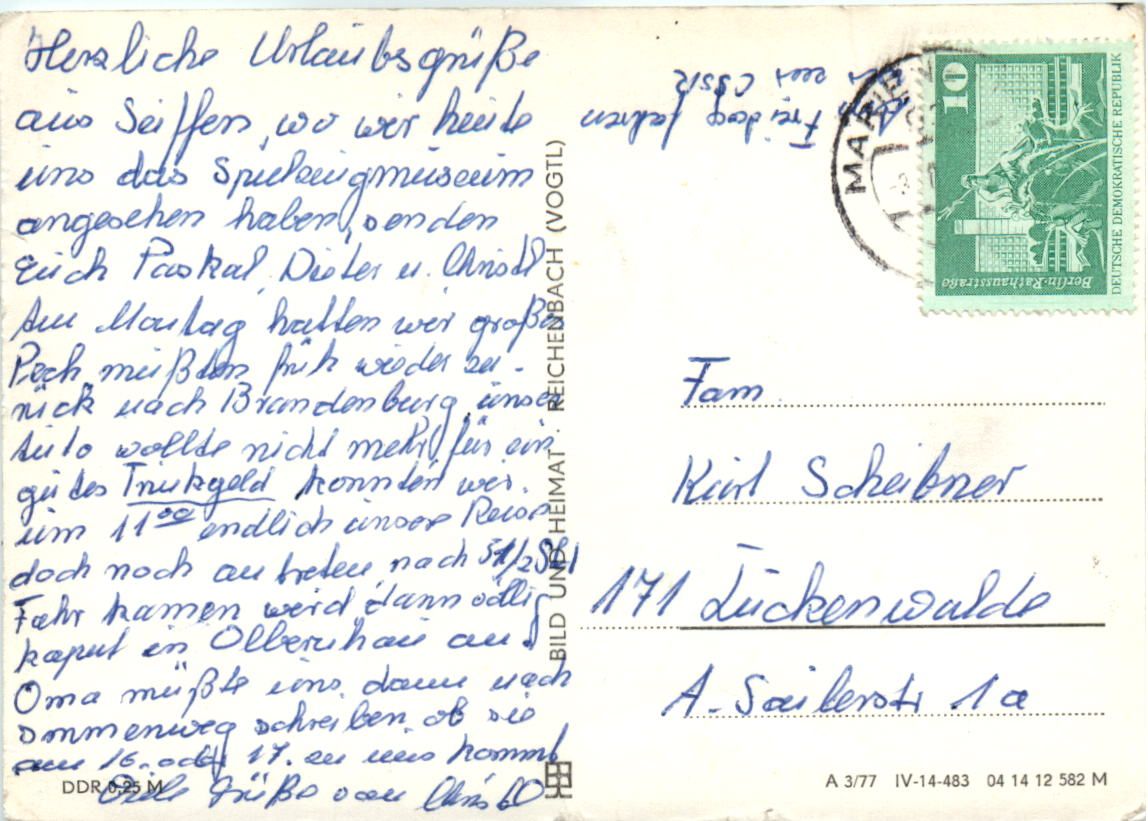 Herzliche Urlaubsgrüße
aus Seiffen, wo wir heute
uns das Spielzeugmuseum
angesehen haben, senden
Euch Paskal, Dieter u. Christl
Am Montag hatten wir großes
Pech mußten früh wieder zu-
rück nach Brandenburg, unser
Auto wollte nicht mehr, für ein
gutes Trinkgeld konnten wir
um 11 00 endlich unsere Reise
doch noch antreten, nach 5 1/2 Std
Fahr kamen wir dann
kaput in Olbernhau an.
Oma müßte uns dann nach
schreiben, ob sie
am 16. oder 17. zu uns kommt
Viele Grüße von Christl
Freitag fahren
wir zur
CSSR
MARIEN
10
Berlin-Rathausstraße
DEUTSCHE DEMOKRATISCHE REPUBLIK
BILD UND HEIMAT · REICHENBACH (VOGTL)
Fam
Kurt Scheibner
171 Luckenwalde
A.-Sailerstr 1a
DDR 0,25 M
A 3/77 IV-14-483 04 14 12 582 M